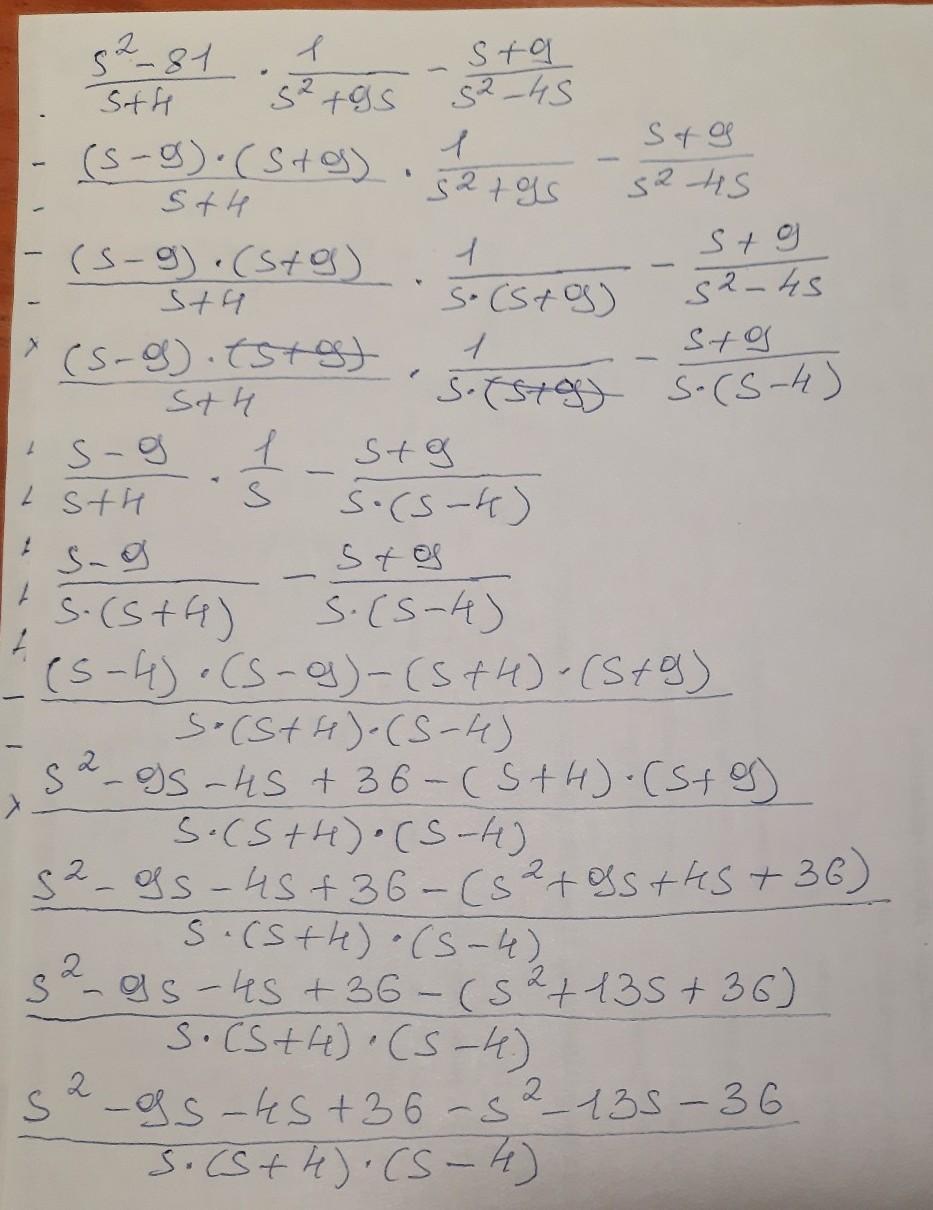 (s² - 81)/(s+4) · 1/(s² + 9s) - (s+9)/(s² - 4s)
((s-9)·(s+9))/(s+4) · 1/(s² + 9s) - (s+9)/(s² - 4s)
((s-9)·(s+9))/(s+4) · 1/(s·(s+9)) - (s+9)/(s² - 4s)
((s-9)·(s+9))/(s+4) · 1/(s·(s+9)) - (s+9)/(s·(s-4))
(s-9)/(s+4) · 1/s - (s+9)/(s·(s-4))
(s-9)/(s·(s+4)) - (s+9)/(s·(s-4))
((s-4)·(s-9)-(s+4)·(s+9))/(s·(s+4)·(s-4))
(s² - 9s - 4s + 36 - (s+4)·(s+9))/(s·(s+4)·(s-4))
(s² - 9s - 4s + 36 - (s² + 9s + 4s + 36))/(s·(s+4)·(s-4))
(s² - 9s - 4s + 36 - (s² + 13s + 36))/(s·(s+4)·(s-4))
(s² - 9s - 4s + 36 - s² - 13s - 36)/(s·(s+4)·(s-4))